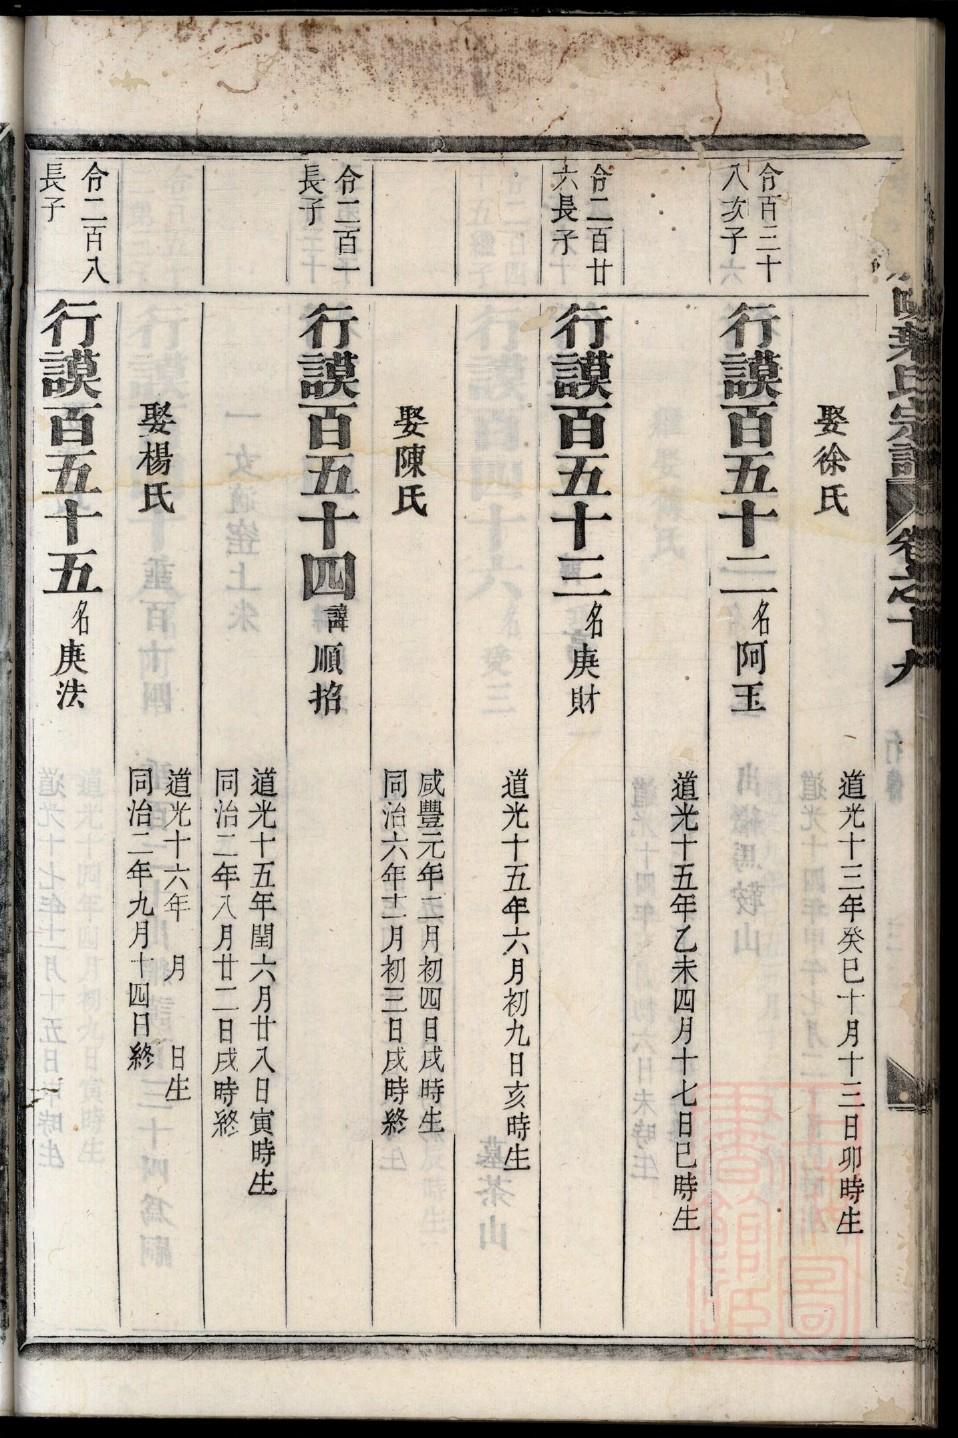 葉氏宗譜 卷之十九
娶徐氏
道光十三年癸巳十月十三日卯時生
令百三十
八次子
行謨百五十二 名阿玉
道光十五年乙未四月十七日巳時生
令二百廿
六長子
行謨百五十三 名庚財
道光十五年六月初九日亥時生
娶陳氏
咸豐元年二月初四日戌時生
同治六年十二月初三日戌時終
令二百十
長子
行謨百五十四 諱順招
道光十五年閏六月廿八日寅時生
同治二年八月廿二日戌時終
娶楊氏
道光十六年 月 日生
同治二年九月十四日終
令二百八
長子
行謨百五十五 名庚法